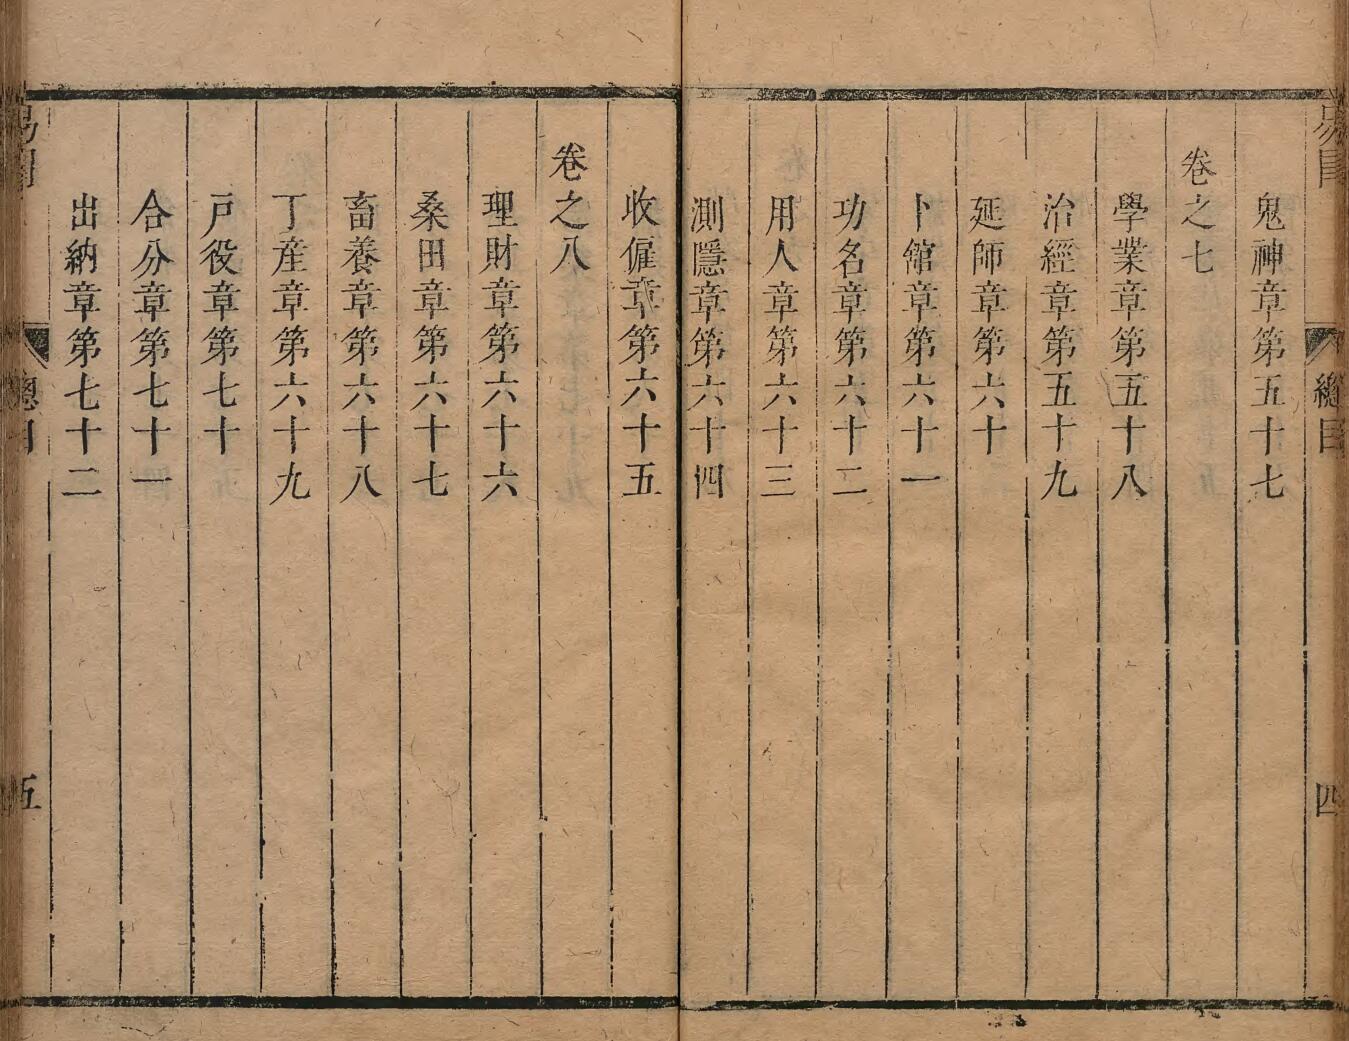 鬼神章第五十七
卷之七
學業章第五十八
治經章第五十九
延師章第六十
卜館章第六十一
功名章第六十二
用人章第六十三
測隱章第六十四
收僱章第六十五
卷之八
理財章第六十六
桑田章第六十七
畜養章第六十八
丁産章第六十九
戶役章第七十
合分章第七十一
出納章第七十二
總目
四
總目
五